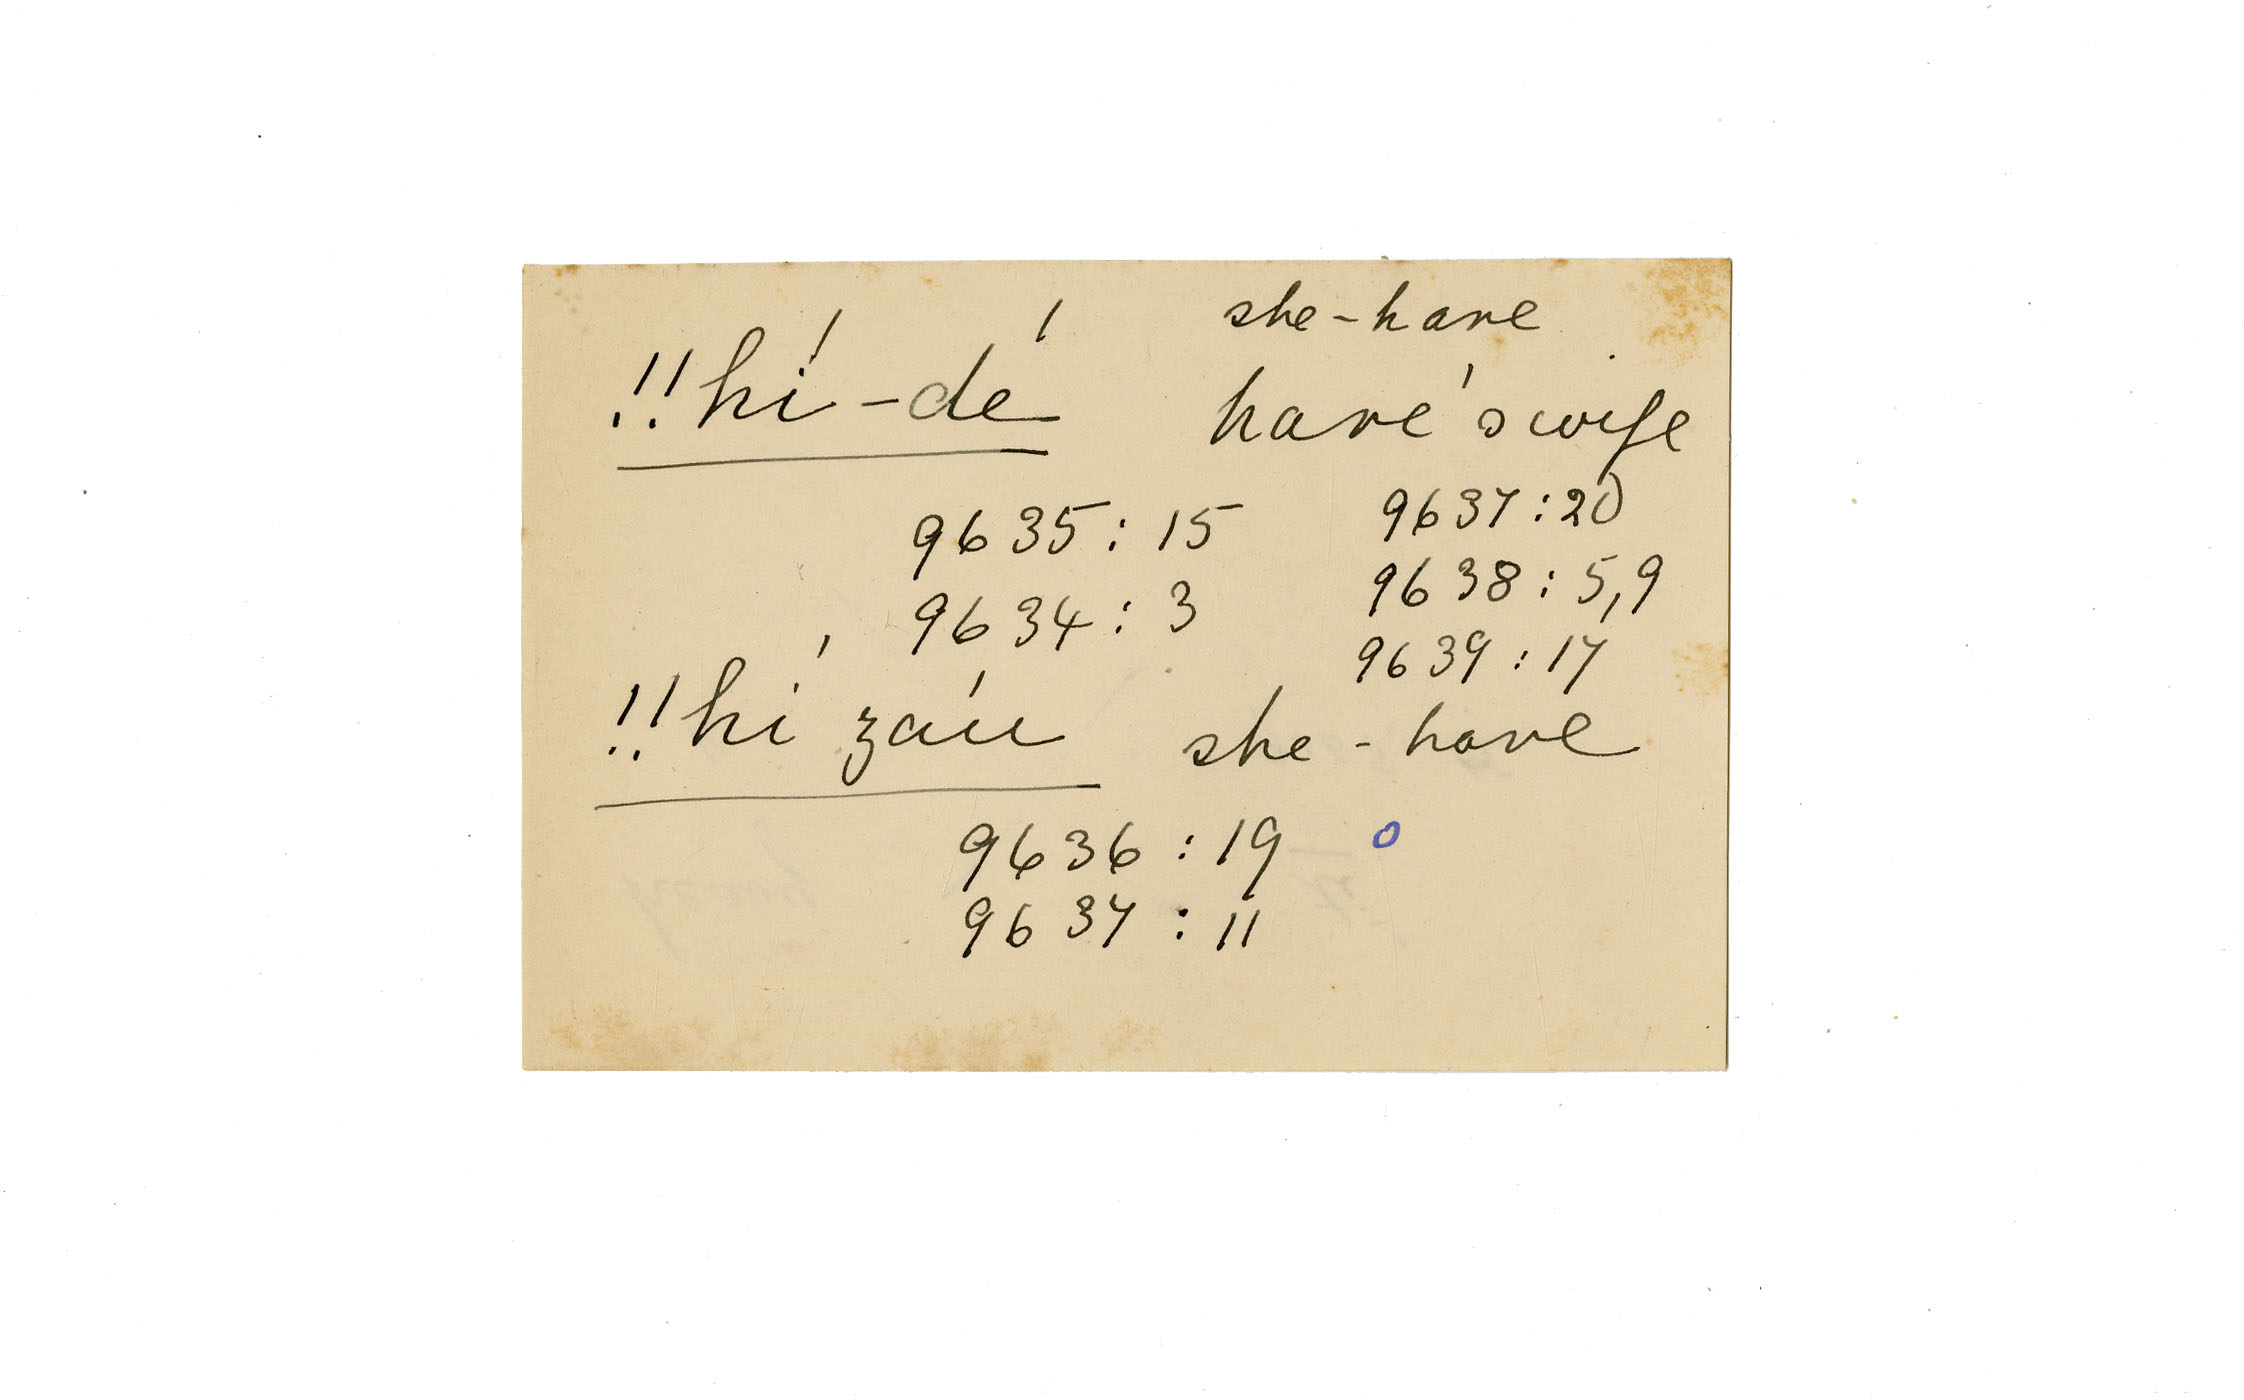 she-hare
!!hí-dé hare's wife
9635:15 9637:20
9638:5,9
9634:3
9639:17
!!hí záú she-hare
9636:19 o
9637:11